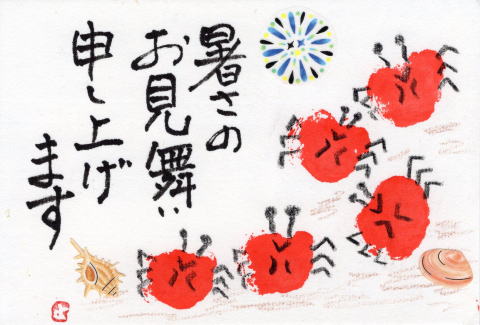 暑さの
お見舞い
申し上げ
ます
よ